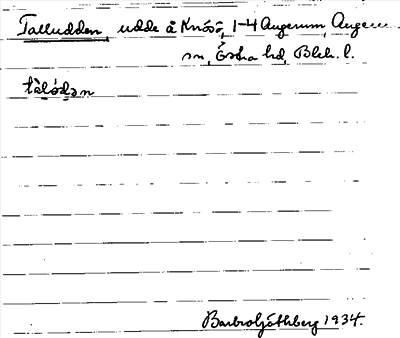 Talludden, udde å Knösö, 1-4 Augerum, Augerum
sn, Östra hd, Blek. l.
tàlṑdən
Barbro Göthberg 1934.